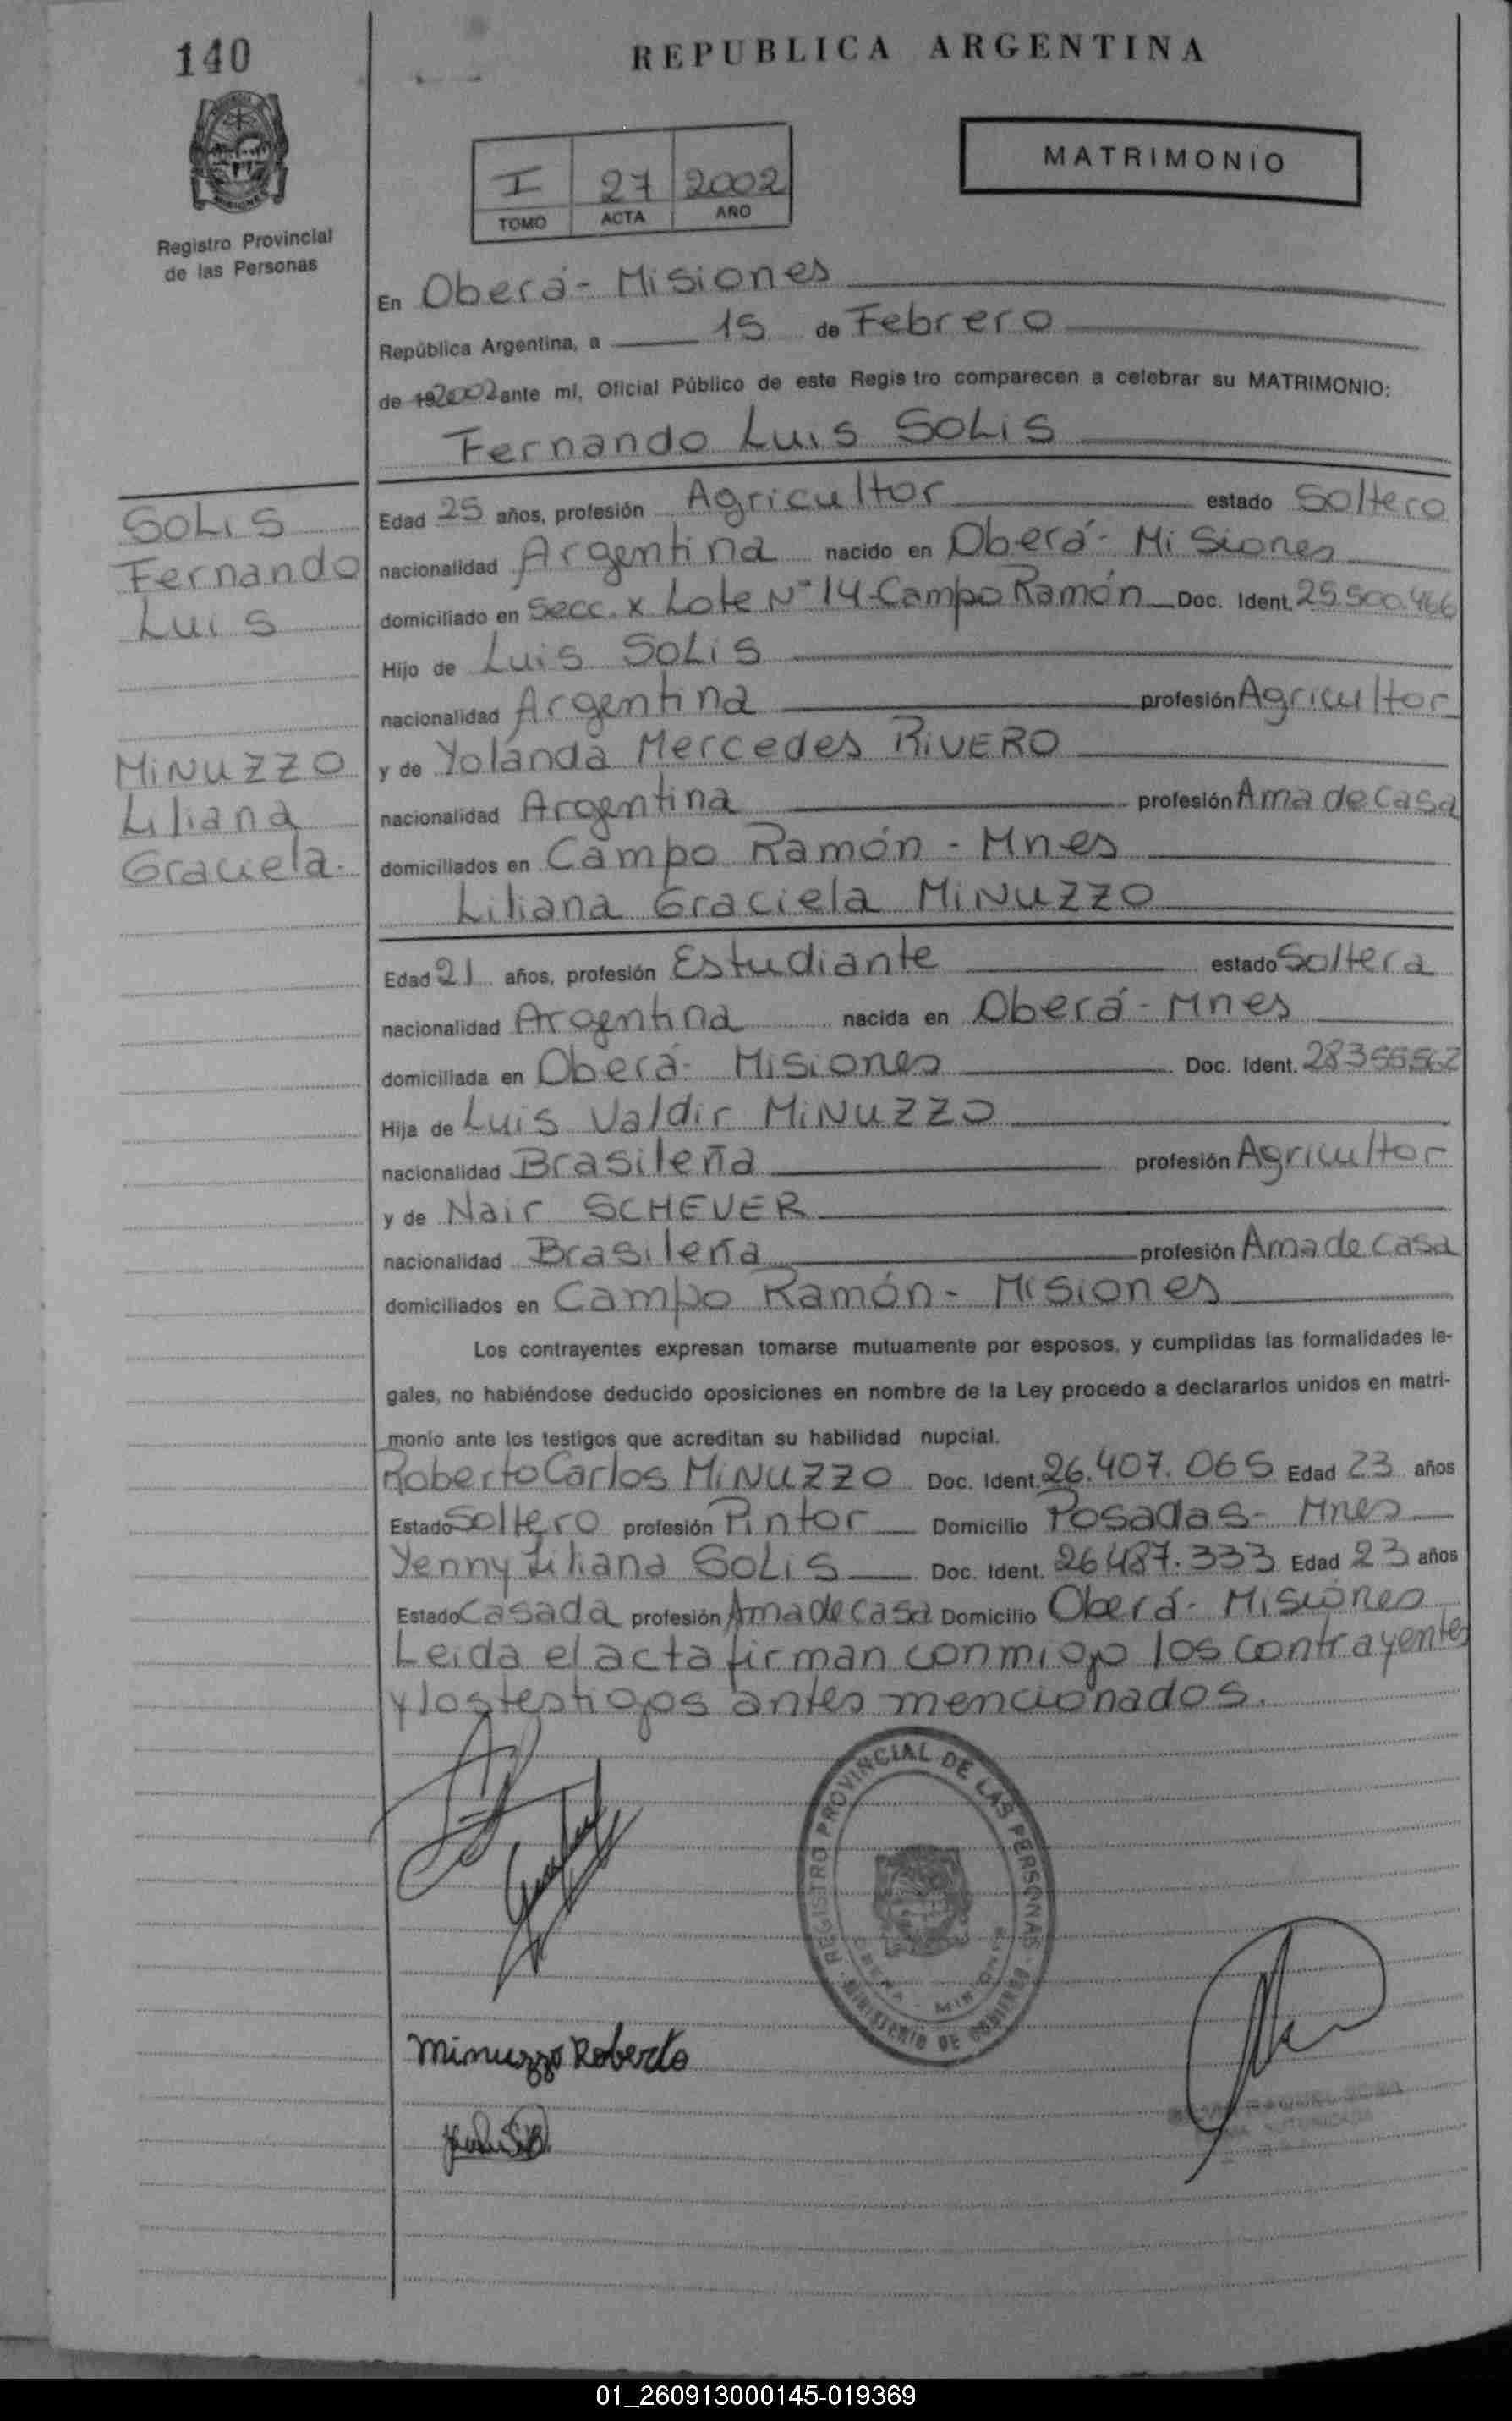 140
REPUBLICA ARGENTINA
MATRIMONIO
I 27 2002
TOMO ACTA AÑO
Registro Provincial
de las Personas
En Oberá - Misiones
República Argentina, a 15 de Febrero
de 19 2002 ante mí, Oficial Público de este Regis tro comparecen a celebrar su MATRIMONIO:
Fernando Luis SOLIS
SOLIS
Fernando
Luis
Edad 25 años, profesión Agricultor estado Soltero
nacionalidad Argentina nacido en Oberá - Misiones
domiciliado en Secc. X Lote Nº 14 - Campo Ramón Doc. Ident. 25.500.466
Hijo de Luis SOLIS
nacionalidad Argentina profesión Agricultor
y de Yolanda Mercedes RIVERO
nacionalidad Argentina profesión Ama de Casa
domiciliados en Campo Ramón - Mnes
MINUZZO
Liliana
Graciela.
Liliana Graciela MINUZZO
Edad 21 años, profesión Estudiante estado Soltera
nacionalidad Argentina nacida en Oberá - Mnes
domiciliada en Oberá - Misiones Doc. Ident. 28355562
Hija de Luis Valdir MINUZZO
nacionalidad Brasileña profesión Agricultor
y de Nair SCHEUER
nacionalidad Brasileña profesión Ama de Casa
domiciliados en Campo Ramón - Misiones
Los contrayentes expresan tomarse mutuamente por esposos, y cumplidas las formalidades le-
gales, no habiéndose deducido oposiciones en nombre de la Ley procedo a declararlos unidos en matri-
monio ante los testigos que acreditan su habilidad nupcial.
Roberto Carlos MINUZZO Doc. Ident. 26.407.065 Edad 23 años
Estado Soltero profesión Pintor Domicilio Posadas - Mnes
Yenny Liliana SOLIS Doc. Ident. 26487.333 Edad 23 años
Estado Casada profesión Ama de casa Domicilio Oberá - Misiones
Leida el acta firman conmigo los contrayentes
y los testigos antes mencionados.
REGISTRO PROVINCIAL DE LAS PERSONAS
OBERA - MISIONES
MINISTERIO DE GOBIERNO
Minuzzo Roberto
01_260913000145-019369